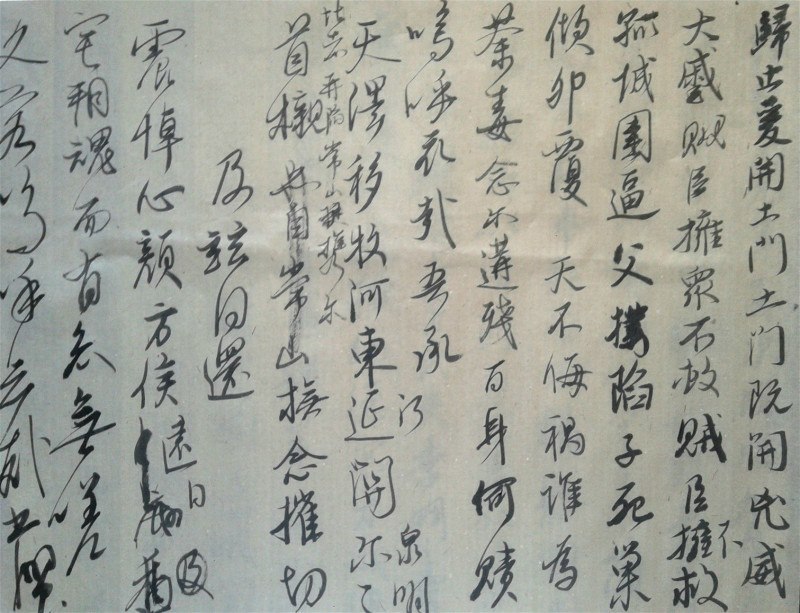 歸止爰開土門土門既開兇威
大蹙賊臣擁眾不救賊臣擁不救
孤城圍逼父擒陷子死巢
傾卵覆天不悔禍誰為
荼毒念尔遘殘百身何贖
嗚呼哀哉吾承
天澤移牧河東近關尔之
泉明
比者再陷常山攜尔
首櫬同常山撫念摧切
及茲同還
震悼心顏方俟遠日
宅魂而有知無嗟
久客嗚呼哀哉尚饗